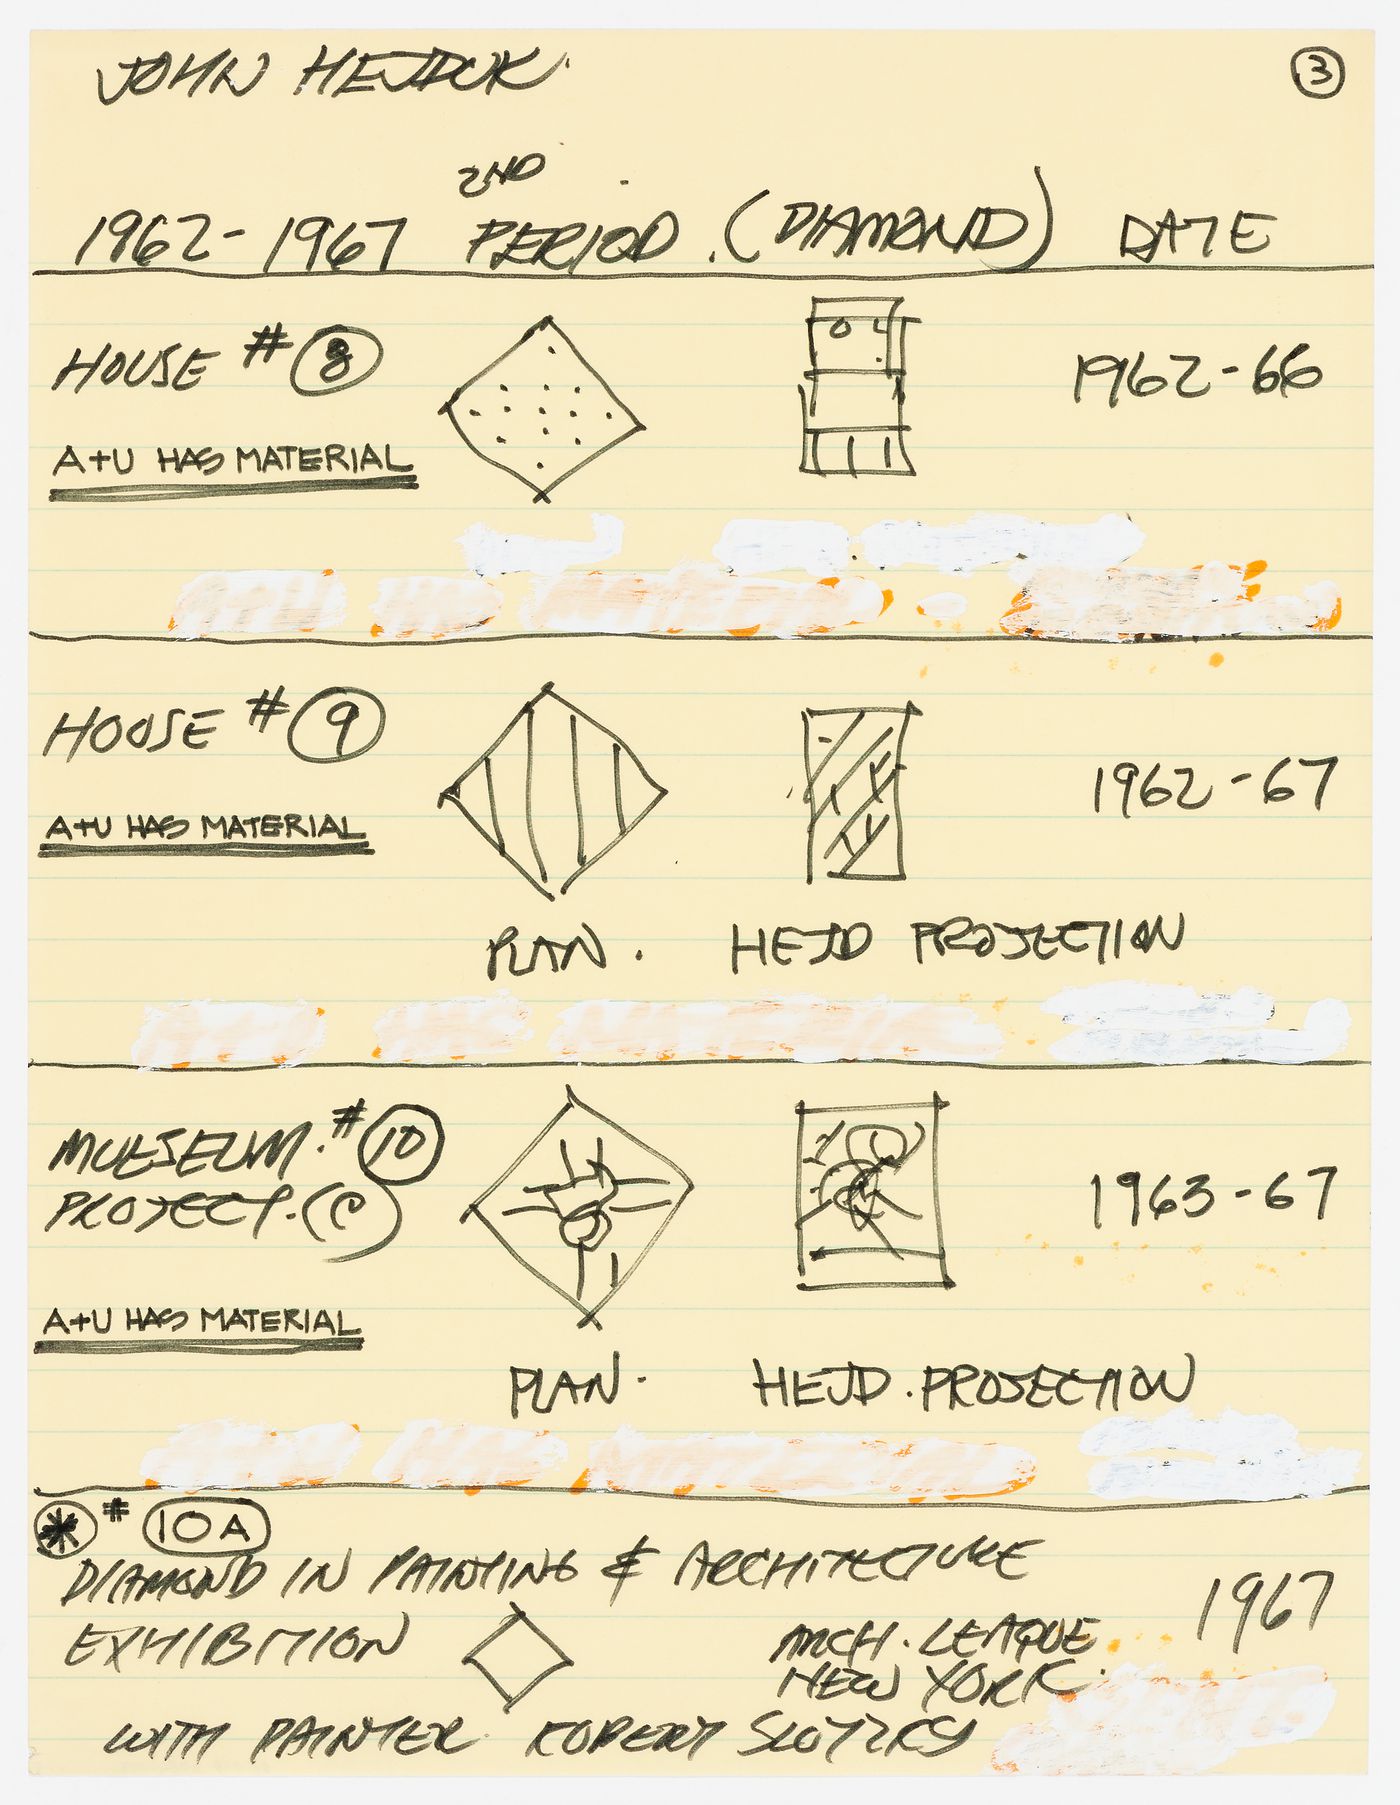 JOHN HEJDUK.
3
2ND
1962-1967 PERIOD. (DIAMOND) DATE
HOUSE # 8
1962-66
A+U HAS MATERIAL
HOUSE # 9
1962-67
A+U HAS MATERIAL
PLAN. HEJD PROJECTION
MUESEUM. # 10
PROJECT. (C)
1963-67
A+U HAS MATERIAL
PLAN. HEJD. PROJECTION
* # 10A
DIAMOND IN PAINTING & ARCHITECTURE
1967
EXHIBITION
ARCH. LEAGUE
NEW YORK.
WITH PAINTER ROBERT SLUTZKY